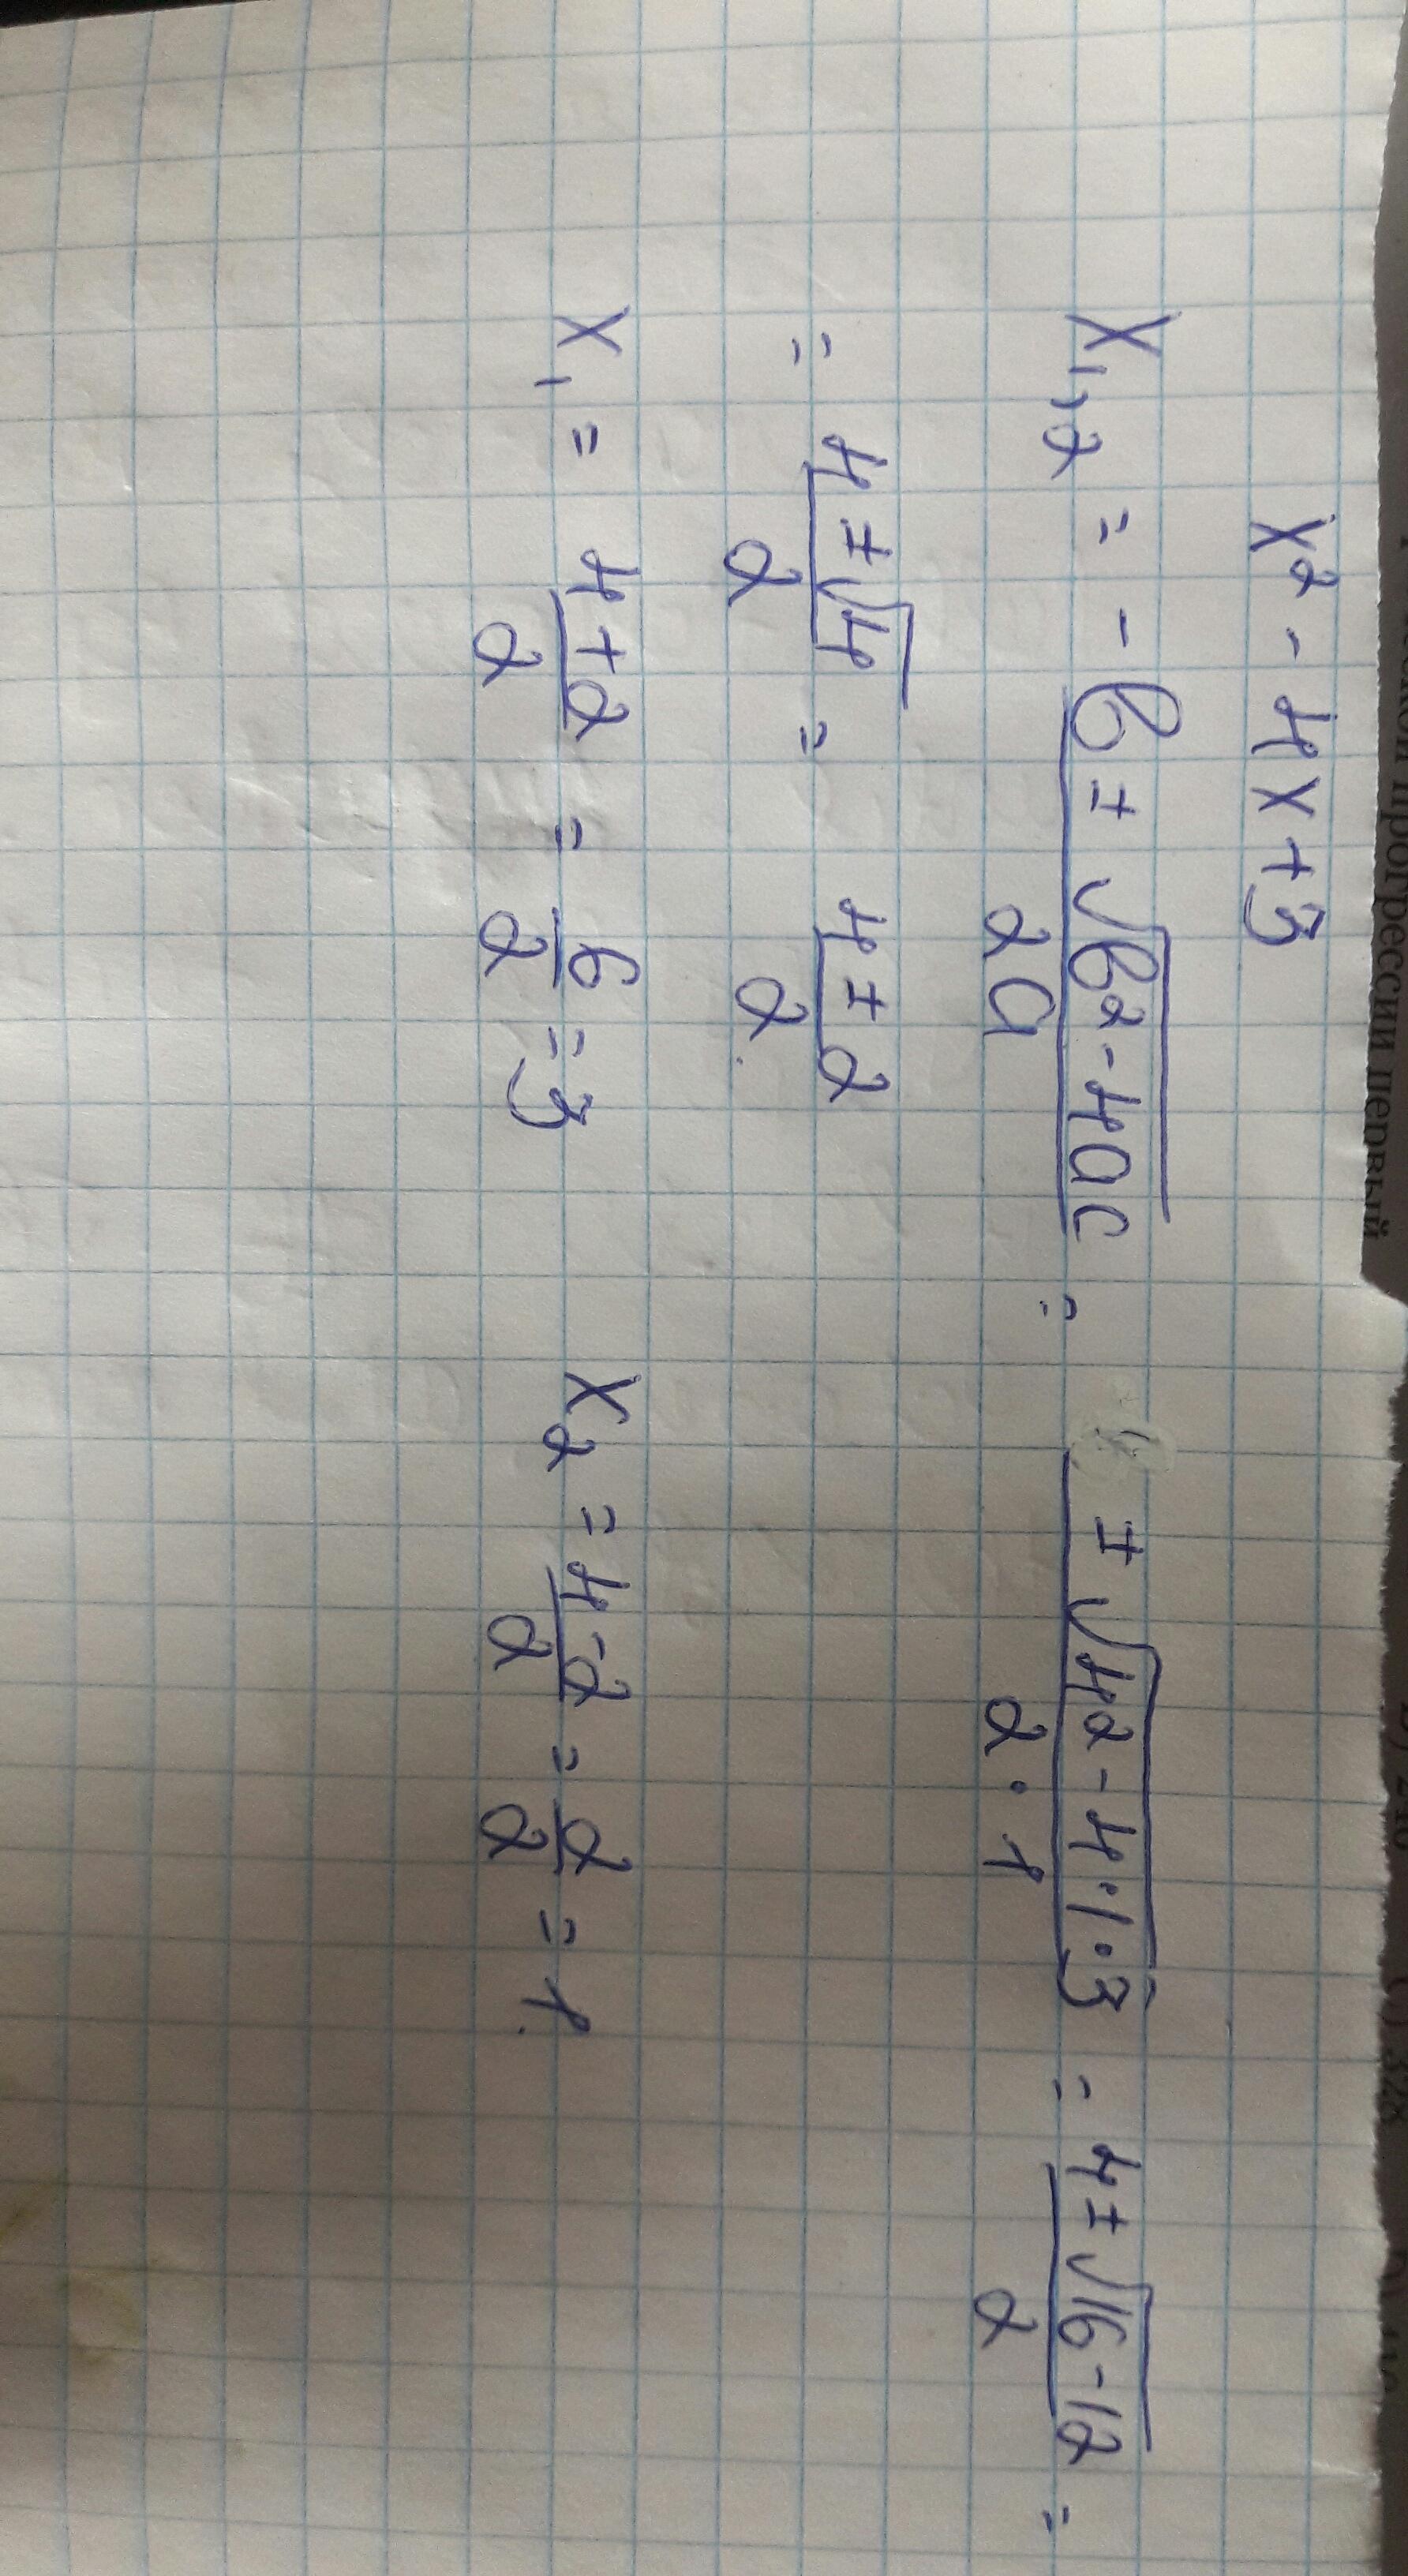 x² - 4x + 3
x₁,₂ = (-b ± √(b² - 4ac)) / 2a = (4 ± √(4² - 4·1·3)) / (2·1) = (4 ± √(16 - 12)) / 2 =
= (4 ± √4) / 2 = (4 ± 2) / 2
x₁ = (4 + 2) / 2 = 6/2 = 3 x₂ = (4 - 2) / 2 = 2/2 = 1.
прогрессии первый